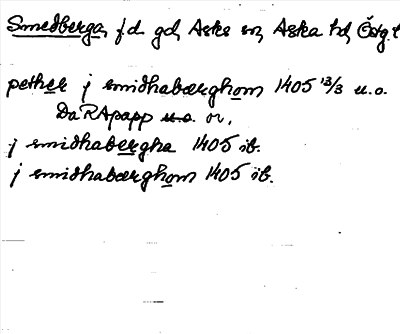 Smedberga, f.d. gd, Aska sn, Aska hd, Östg.l
pether j smidhabærghom 1405 13/3 u.o.
DaRApapp u.o. or.
j smidhabergha 1405 ib.
j smidhabærghom 1405 ib.